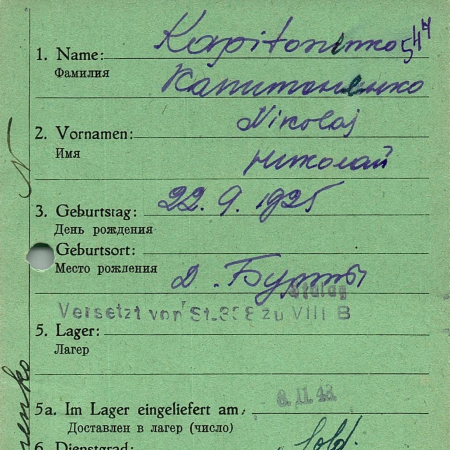 Kapitonenko 544
1. Name:
Фамилия
Капитоненко
Nikolaj
2. Vornamen:
Имя
Николай
3. Geburtstag: 22.9.1925
День рождения
Geburtsort:
Место рождения Д. Бурты
Stalag
Versetzt von St. 338 zu VIII B
5. Lager:
Лагер
8.11.43
5a. Im Lager eingeliefert am:
Доставлен в лагер (число)
6. Dienstgrad: Sold.
nenko